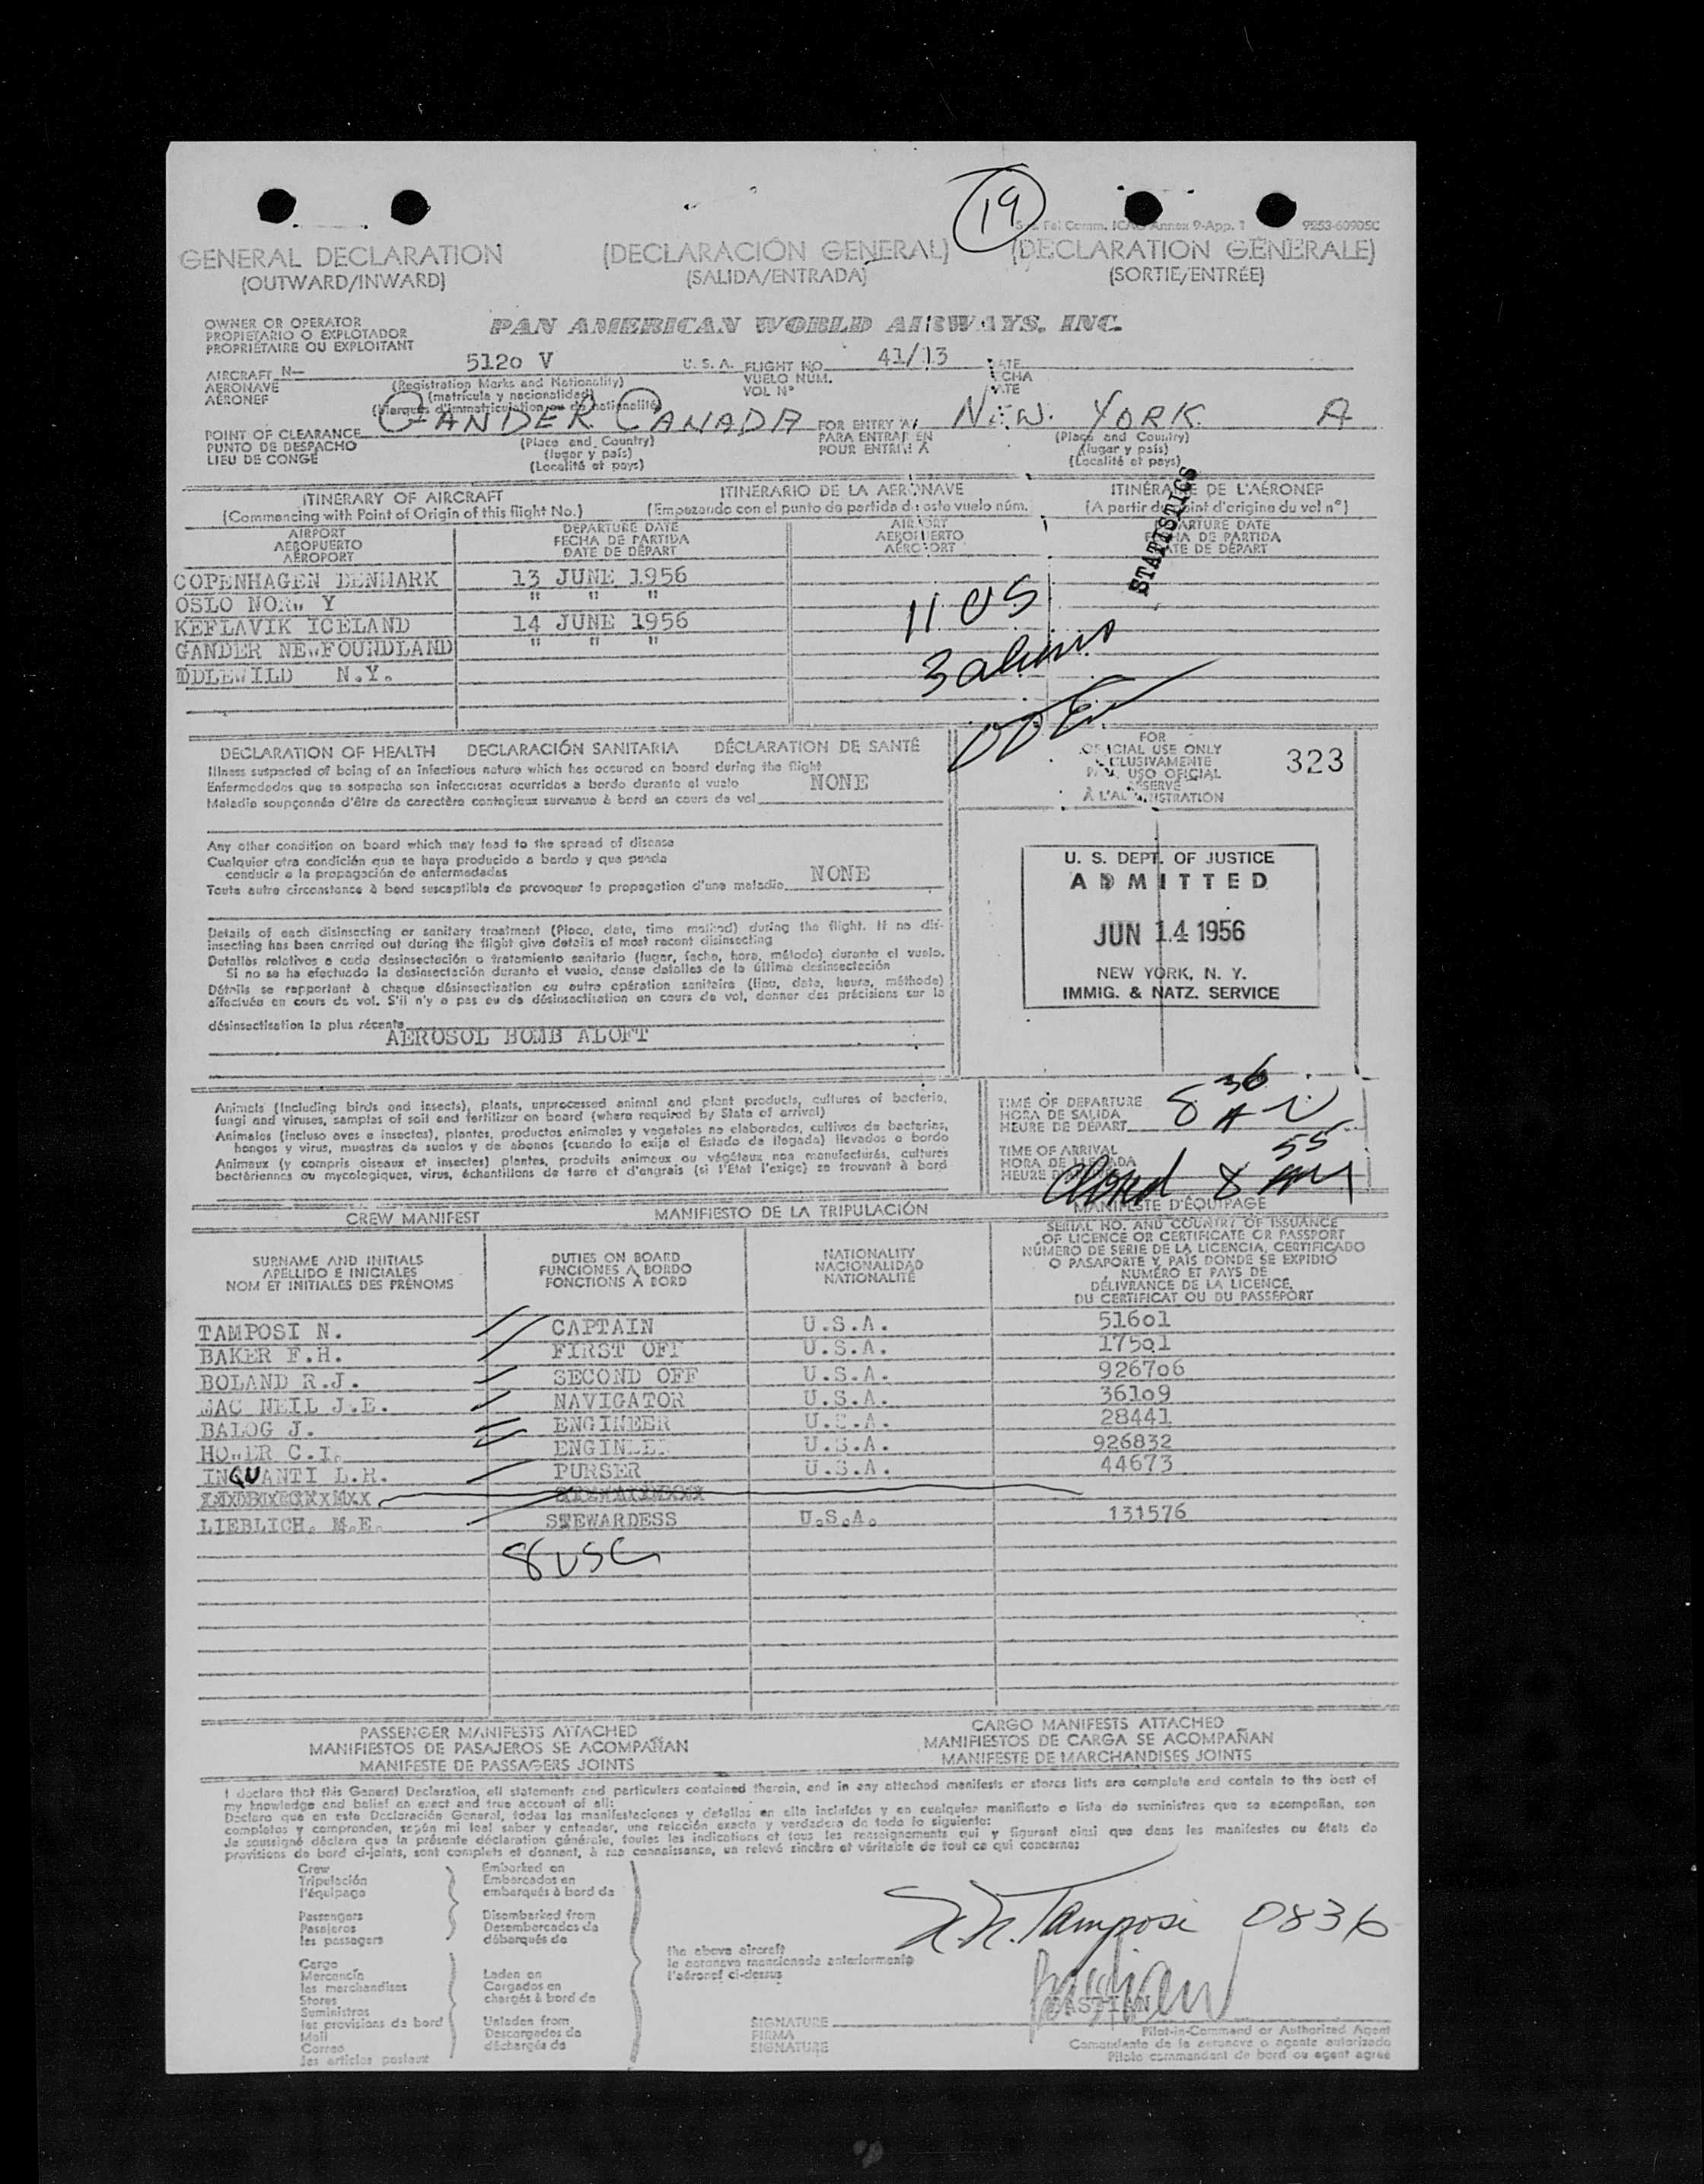 19
S. Fal Comm. ICAO Annex 9-App. 1 9253-60905C
GENERAL DECLARATION (DECLARACIÓN GENERAL) (DECLARATION GÉNÉRALE)
(OUTWARD/INWARD) (SALIDA/ENTRADA) (SORTIE/ENTRÉE)
OWNER OR OPERATOR
PROPIETARIO O EXPLOTADOR
PROPRIÉTAIRE OU EXPLOITANT
PAN AMERICAN WORLD AIRWAYS, INC.
AIRCRAFT N— 5120 V U. S. A. FLIGHT NO. 41/13
AERONAVE (Registration Marks and Nationality) VUELO NUM.
AÉRONEF (matrícula y nacionalidad) VOL Nº
(Marques d'immatriculation ou de nationalité)
POINT OF CLEARANCE GANDER CANADA FOR ENTRY AT NEW YORK A
PUNTO DE DESPACHO (Place and Country) PARA ENTRAR EN (Place and Country)
LIEU DE CONGÉ (lugar y país) POUR ENTRER A (lugar y país)
(Localité et pays) (Localité et pays)
STATISTICS
ITINERARY OF AIRCRAFT ITINERARIO DE LA AERONAVE ITINÉRAIRE DE L'AÉRONEF
(Commencing with Point of Origin of this flight No.) (Empezando con el punto de partida de este vuelo núm. (A partir du point d'origine du vol nº)
AIRPORT DEPARTURE DATE AIRPORT DEPARTURE DATE
AEROPUERTO FECHA DE PARTIDA AEROPUERTO FECHA DE PARTIDA
AÉROPORT DATE DE DÉPART AÉROPORT DATE DE DÉPART
COPENHAGEN DENMARK 13 JUNE 1956
OSLO NORW Y " " "
KEFLAVIK ICELAND 14 JUNE 1956
GANDER NEWFOUNDLAND " " "
IDLEWILD N.Y.
11 US
3 aliens
DECLARATION OF HEALTH DECLARACIÓN SANITARIA DÉCLARATION DE SANTÉ
Illness suspected of being of an infectious nature which has occured on board during the flight
Enfermedades que se sospecha son infecciosas ocurridas a bordo durante el vuelo NONE
Maladie soupçonnée d'être de caractère contagieux survenue à bord en cours de vol
Any other condition on board which may lead to the spread of disease
Cualquier otra condición que se haya producido a bordo y que pueda
conducir a la propagación de enfermedades NONE
Toute autre circonstance à bord susceptible de provoquer la propagation d'une maladie
Details of each disinsecting or sanitary treatment (Place, date, time method) during the flight. If no dis-
insecting has been carried out during the flight give details of most recent disinsecting
Detalles relativos a cada desinsectación o tratamiento sanitario (lugar, fecha, hora, método) durante el vuelo.
Si no se ha efectuado la desinsectación durante el vuelo, dense detalles de la última desinsectación
Détails se rapportant à chaque désinsectisation ou autre opération sanitaire (lieu, date, heure, méthode)
effectuée en cours de vol. S'il n'y a pas eu de désinsectisation en cours de vol, donner des précisions sur la
désinsectisation la plus récente
AEROSOL BOMB ALOFT
FOR
OFFICIAL USE ONLY
EXCLUSIVAMENTE
PARA USO OFICIAL
RÉSERVÉ
À L'ADMINISTRATION
323
U. S. DEPT. OF JUSTICE
ADMITTED
JUN 14 1956
NEW YORK, N. Y.
IMMIG. & NATZ. SERVICE
Animals (including birds and insects), plants, unprocessed animal and plant products, cultures of bacteria,
fungi and viruses, samples of soil and fertilizer on board (where required by State of arrival)
Animales (incluso aves e insectos), plantas, productos animales y vegetales no elaborados, cultivos de bacterias,
hongos y virus, muestras de suelos y de abonos (cuando lo exija el Estado de llegada) llevados a bordo
Animaux (y compris oiseaux et insectes) plantes, produits animaux ou végétaux non manufacturés, cultures
bactériennes ou mycologiques, virus, échantillons de terre et d'engrais (si l'État l'exige) se trouvant à bord
TIME OF DEPARTURE 8 36
HORA DE SALIDA
HEURE DE DÉPART
TIME OF ARRIVAL
HORA DE LLEGADA
Closed 8 55 AM
CREW MANIFEST MANIFIESTO DE LA TRIPULACIÓN MANIFESTE D'ÉQUIPAGE
SURNAME AND INITIALS
APELLIDO E INICIALES
NOM ET INITIALES DES PRÉNOMS
DUTIES ON BOARD
FUNCIONES A BORDO
FONCTIONS À BORD
NATIONALITY
NACIONALIDAD
NATIONALITÉ
SERIAL NO. AND COUNTRY OF ISSUANCE
OF LICENCE OR CERTIFICATE OR PASSPORT
NÚMERO DE SERIE DE LA LICENCIA, CERTIFICADO
O PASAPORTE Y PAÍS DONDE SE EXPIDIÓ
NUMÉRO ET PAYS DE
DÉLIVRANCE DE LA LICENCE,
DU CERTIFICAT OU DU PASSEPORT
TAMPOSI N. CAPTAIN U.S.A. 51601
BAKER F.H. FIRST OFF U.S.A. 17501
BOLAND R.J. SECOND OFF U.S.A. 926706
MAC NEIL J.E. NAVIGATOR U.S.A. 36109
BALOG J. ENGINEER U.S.A. 28441
HOWER C.I. ENGINEE U.S.A. 926832
INQUANTI L.R. PURSER U.S.A. 44673
LIEBLICH. M.E. STEWARDESS U.S.A. 131576
8 USC
PASSENGER MANIFESTS ATTACHED CARGO MANIFESTS ATTACHED
MANIFIESTOS DE PASAJEROS SE ACOMPAÑAN MANIFIESTOS DE CARGA SE ACOMPAÑAN
MANIFESTE DE PASSAGERS JOINTS MANIFESTE DE MARCHANDISES JOINTS
I declare that this General Declaration, all statements and particulars contained therein, and in any attached manifests or stores lists are complete and contain to the best of
my knowledge and belief an exact and true account of all:
Declaro que en esta Declaración General, todas las manifestaciones y detalles en ella incluídos y en cualquier manifiesto o lista de suministros que se acompañan, son
completos y comprenden, según mi leal saber y entender, una relcción exacta y verdadera de todo lo siguiente:
Je soussigné déclare que la présente déclaration générale, toutes les indications et tous les renseignements qui y figurent ainsi que dans les manifestes ou états de
provisions de bord ci-joints, sont complets et donnent, à ma connaissance, un relevé sincère et véritable de tout ce qui concerne:
Crew Embarked on
Tripulación Embarcados en
l'équipage embarqués à bord de
Passengers Disembarked from
Pasajeros Desembarcados de
les passagers débarqués de
the above aircraft
la aeronave mencionada anteriormente
l'aéronef ci-dessus
Cargo
Mercancía Laden on
les marchandises Cargados en
Stores chargés à bord de
Suministros
les provisions de bord Unladen from
Mail Descargados de
Correo déchargés de
les articles postaux
N. Tamposi 0836
BASTIAN
SIGNATURE
FIRMA
SIGNATURE
Pilot-in-Command or Authorized Agent
Comandante de la aeronave o agente autorizado
Pilote commandant de bord ou agent agréé